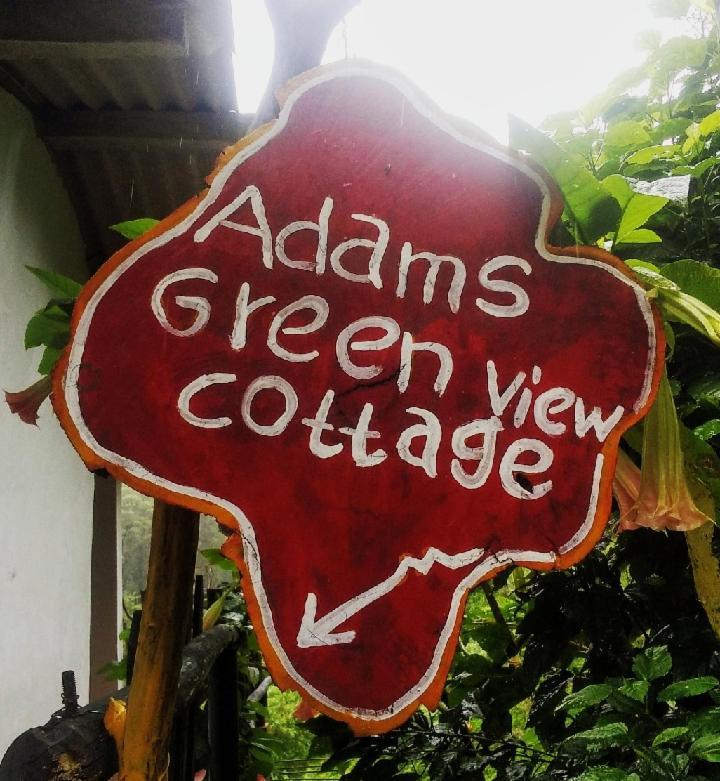 Adams
Green view
cottage